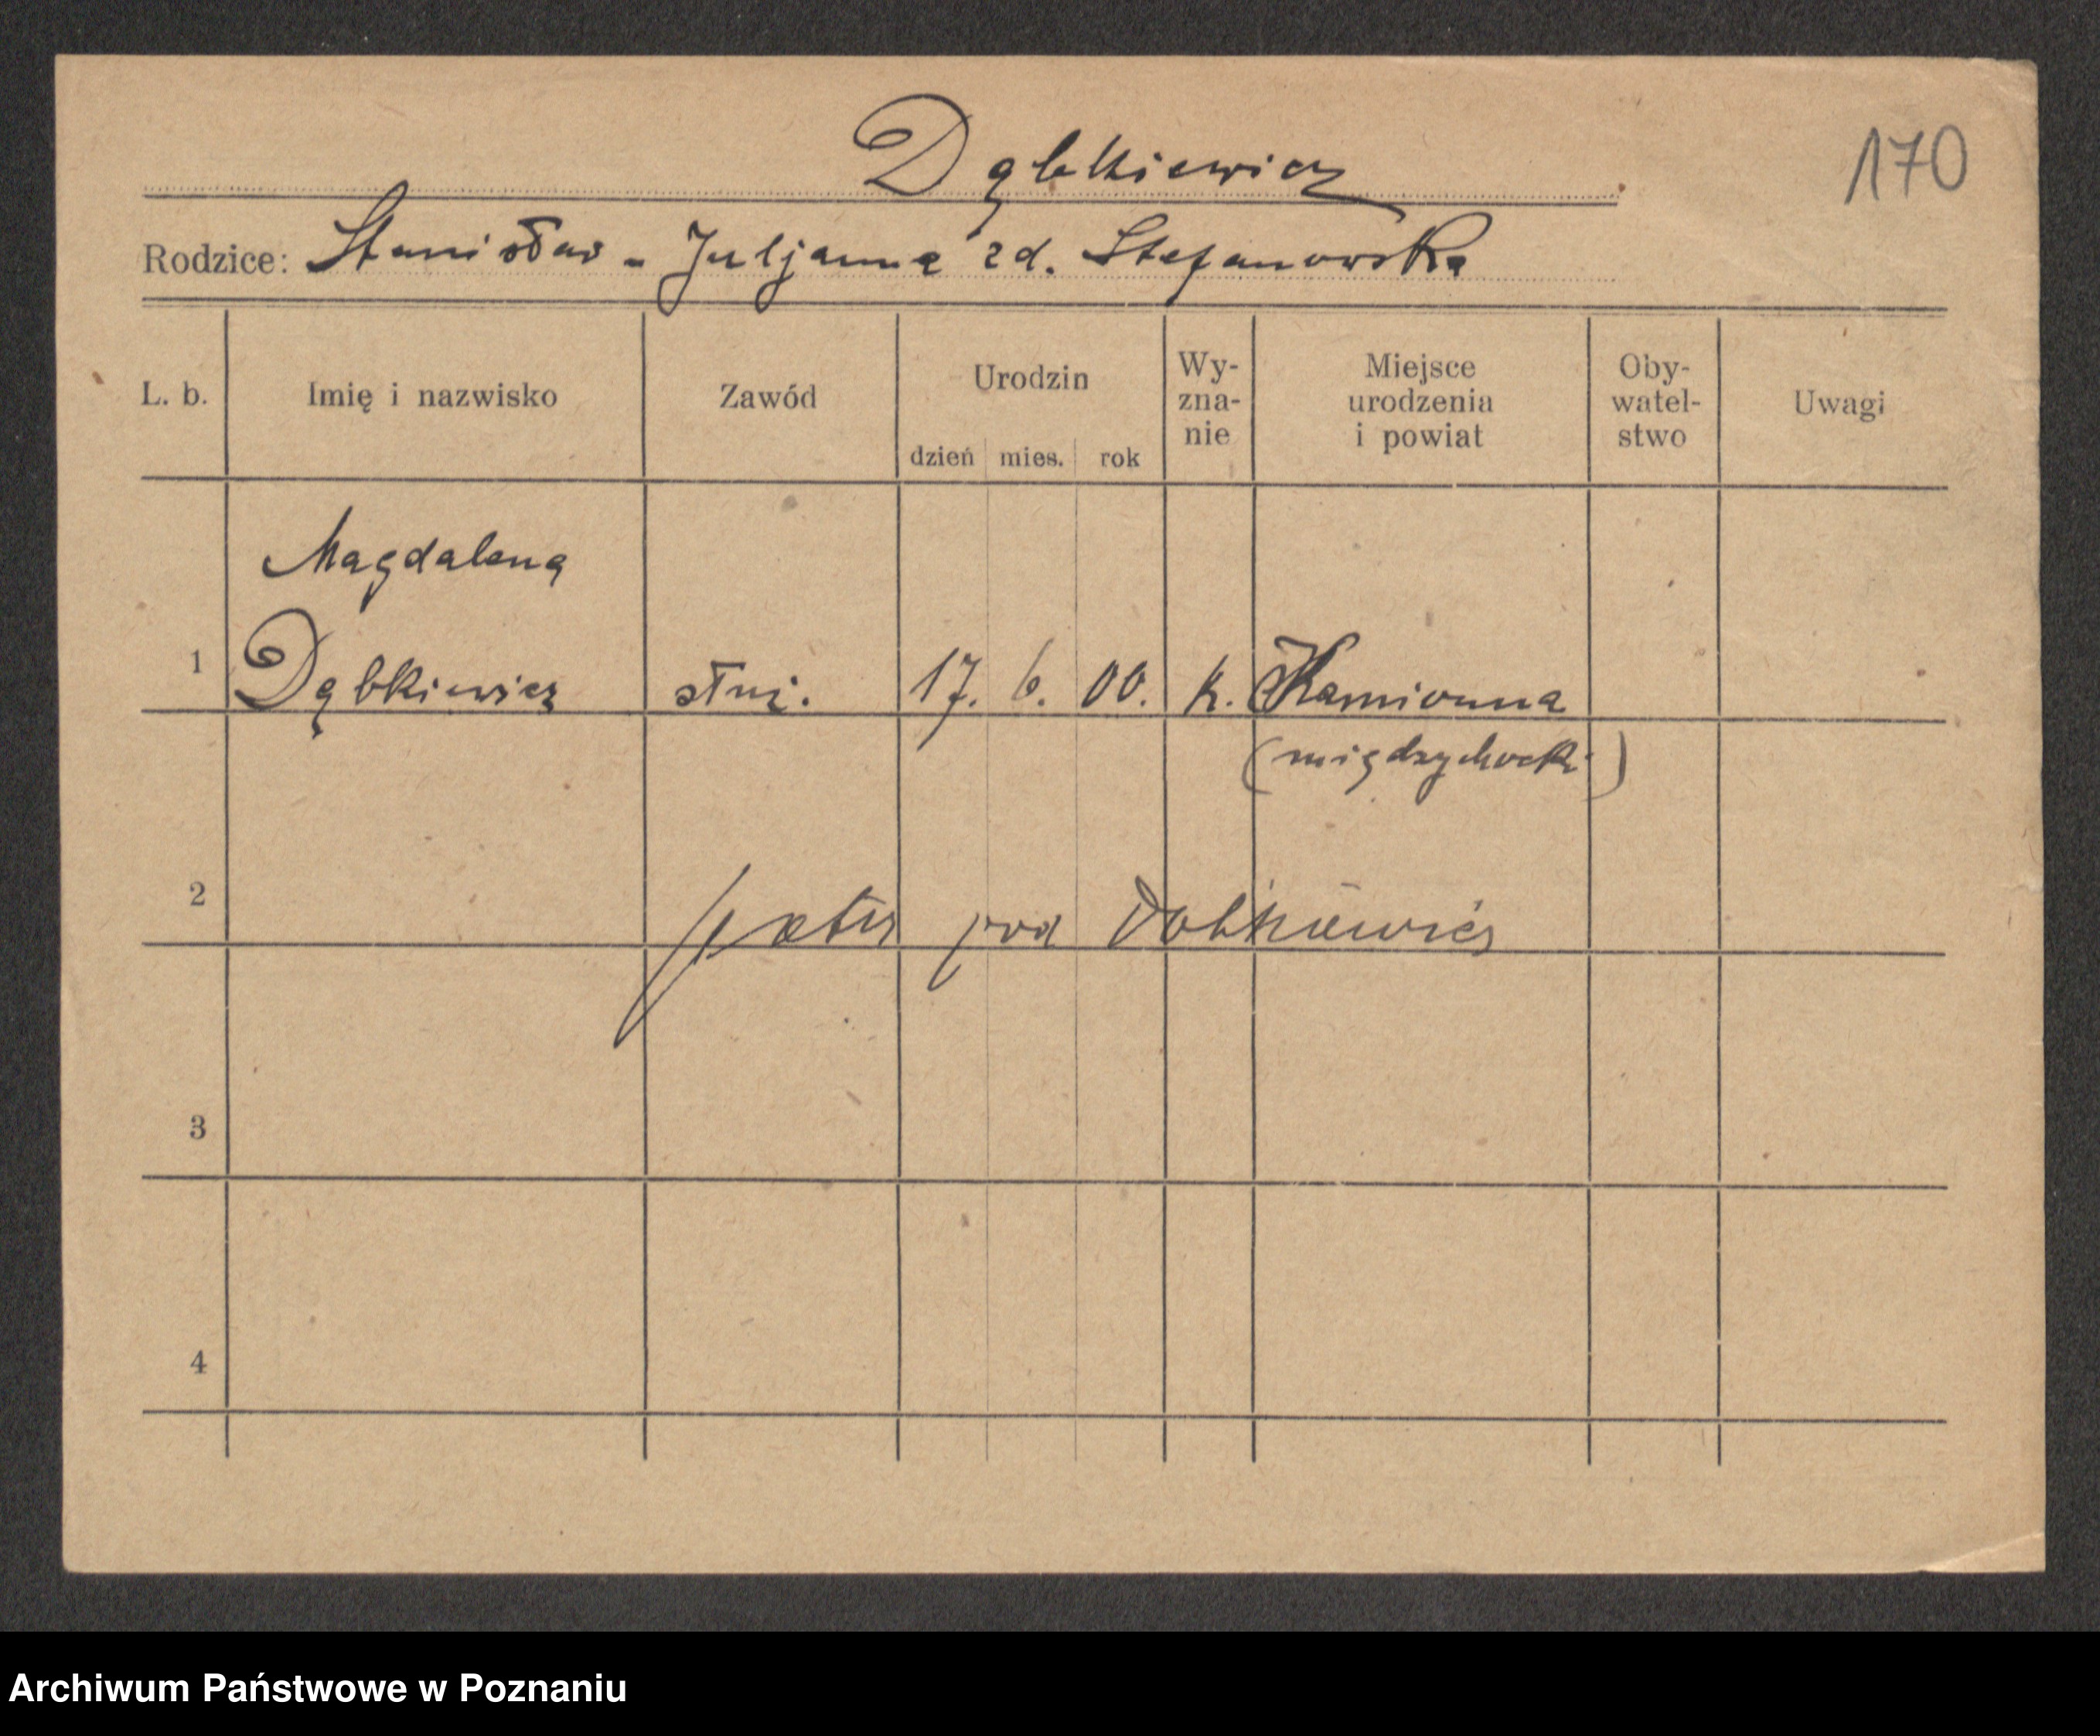 170
Dąbkiewicz
Rodzice: Stanisław - Juljanna zd. Stefanowska
L. b. Imię i nazwisko Zawód Urodzin dzień mies. rok Wy-zna-nie Miejsce urodzenia i powiat Oby-watel-stwo Uwagi
Magdalena
1 Dąbkiewicz służ. 17. 6. 00. k. Kamionna
(międzychocki)
2 pod Dobkiewicz
3
4
Archiwum Państwowe w Poznaniu